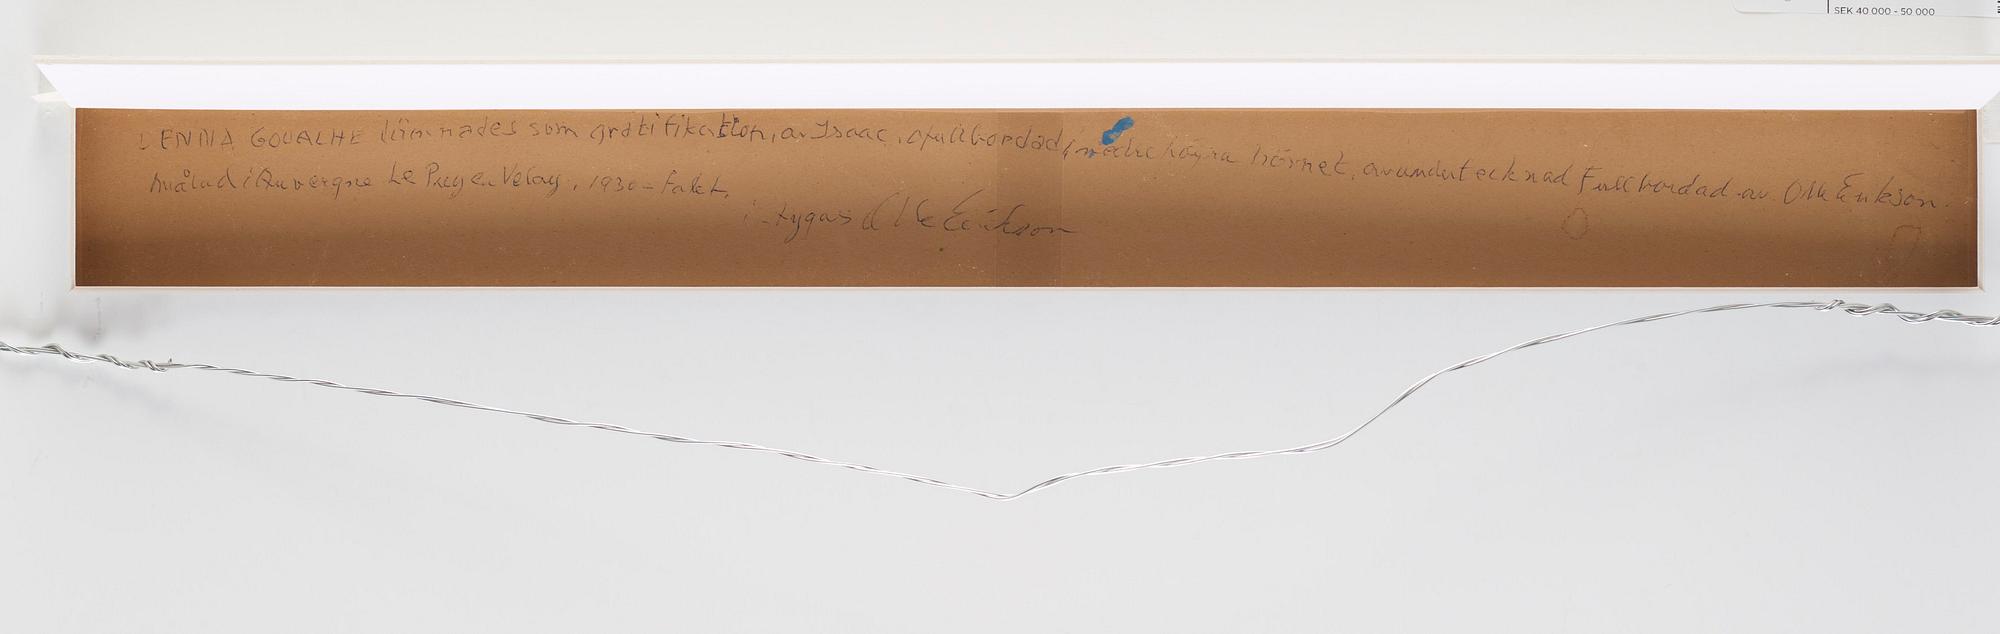 SEK 40 000 - 50 000
DENNA GOUACHE lämnades som gratifikation, av Isaac, ofullbordad, i nedre högra hörnet, av undertecknad Fullbordad av Olle Erikson.
målad i Auvergne Le Puy en Velay, 1930-talet.
intygas Olle Erikson